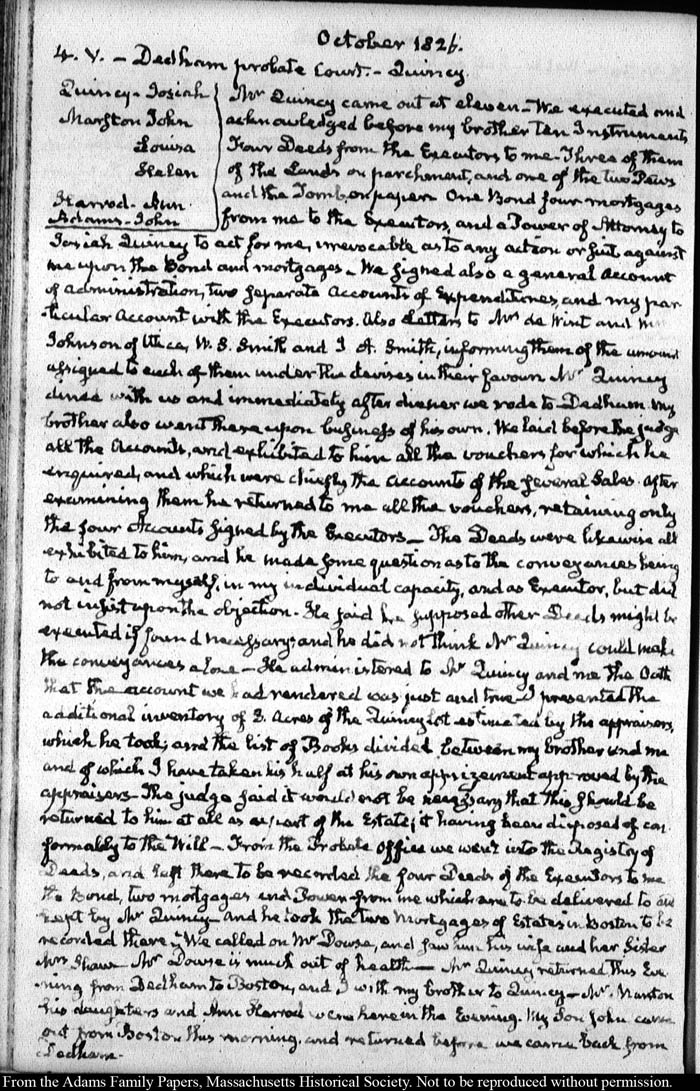 October 1826.
4. V. — Dedham probate Court. — Quincy.
Quincy - Josiah
Marston John
Louisa
Helen
Harrod - Ann
Adams - John
Mr Quincy came out at eleven — We executed and
acknowledged before my brother ten Instruments
Four Deeds from the Executors to me — Three of them
of the Lands on parchment, and one of the two Pews
and the Tomb, on paper. One Bond four mortgages
from me to the Executors, and a Power of Attorney to
Josiah Quincy to act for me, irrevocable as to any action or suit against
me upon the Bond and mortgages. We signed also a general Account
of administration, two separate Accounts of Expenditures, and my par-
ticular Account with the Executors. Also Letters to Mrs de Wint and Mrs
Johnson of Utica, W. S. Smith and J A. Smith, informing them of the amount
assigned to each of them under the devises in their favour. Mr Quincy
dined with us and immediately after dinner we rode to Dedham. My
brother also went there upon business of his own. We laid before the judge
all the Accounts, and exhibited to him all the vouchers for which he
enquired, and which were chiefly the accounts of the several Sales. After
examining them he returned to me all the vouchers, retaining only
the four Accounts signed by the Executors — The Deeds were likewise all
exhibited to him, and he made some question as to the conveyances being
to and from myself, in my individual capacity, and as Executor, but did
not insist upon the objection. He said he supposed other Deeds might be
executed if found necessary; and he did not think Mr Quincy could make
the conveyances alone — He administered to Mr Quincy and me the Oath
that the account we had rendered was just and true. I presented the
additional inventory of 8. Acres of the Quincy lot estimated by the appraisers,
which he took; and the list of Books divided between my brother and me
and of which I have taken his half at his own apprizement approved by the
appraisers. The judge said it would not be necessary that this should be
returned to him at all as a part of the Estate; it having been disposed of con-
formably to the Will — From the Probate Office we went into the Registry of
Deeds, and left there to be recorded the four Deeds of the Executors to me
the Bond, two mortgages and Power from me which are to be delivered to and
kept by Mr Quincy. And he took the two Mortgages of Estates in Boston to be
recorded there. We called on Mr Dowse, and saw him his wife and her Sister
Mrs Shaw. Mr Dowse is much out of health — Mr Quincy returned this Eve-
ning from Dedham to Boston, and I with my brother to Quincy — Mr. Marston
his daughters and Ann Harrod were here in the Evening. My Son John came
out from Boston this morning, and returned before we came back from
Dedham.
From the Adams Family Papers, Massachusetts Historical Society. Not to be reproduced without permission.